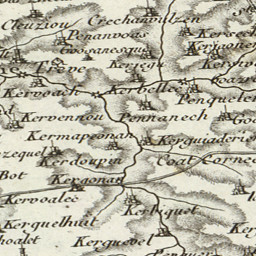 Cleuziou
Crechanvulzen
Penanvoas
Goosanesqu
Kersech
Kerigonen
Treve
Kerjegu
Kervoach
Kerbellec
Penquelen
Kervennou
Pennanech
Kermapeonan
Kerguiaderien
zequel
Kerdoupin
Coat Cornec
Bot
Kergonan
Kervoalec
Kerliquel
Kerquelhuit
hoalet
Kerquevel